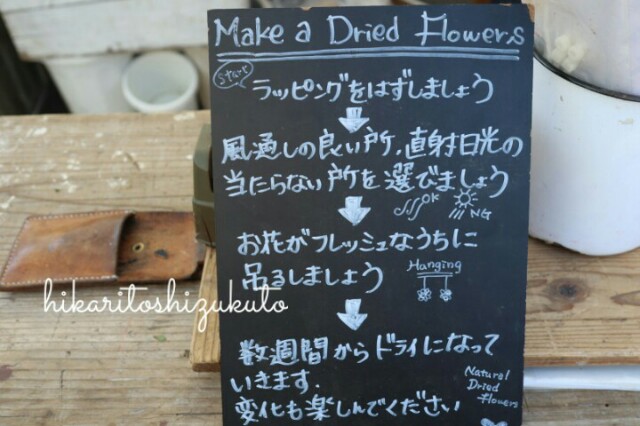 Make a Dried Flowers
start
ラッピングをはずしましょう
風通しの良い所、直射日光の
当たらない所を選びましょう
OK
NG
お花がフレッシュなうちに
吊るしましょう
Hanging
hikaritoshizukuto
数週間からドライになって
いきます.
変化も楽しんでください
Natural
Dried
flowers